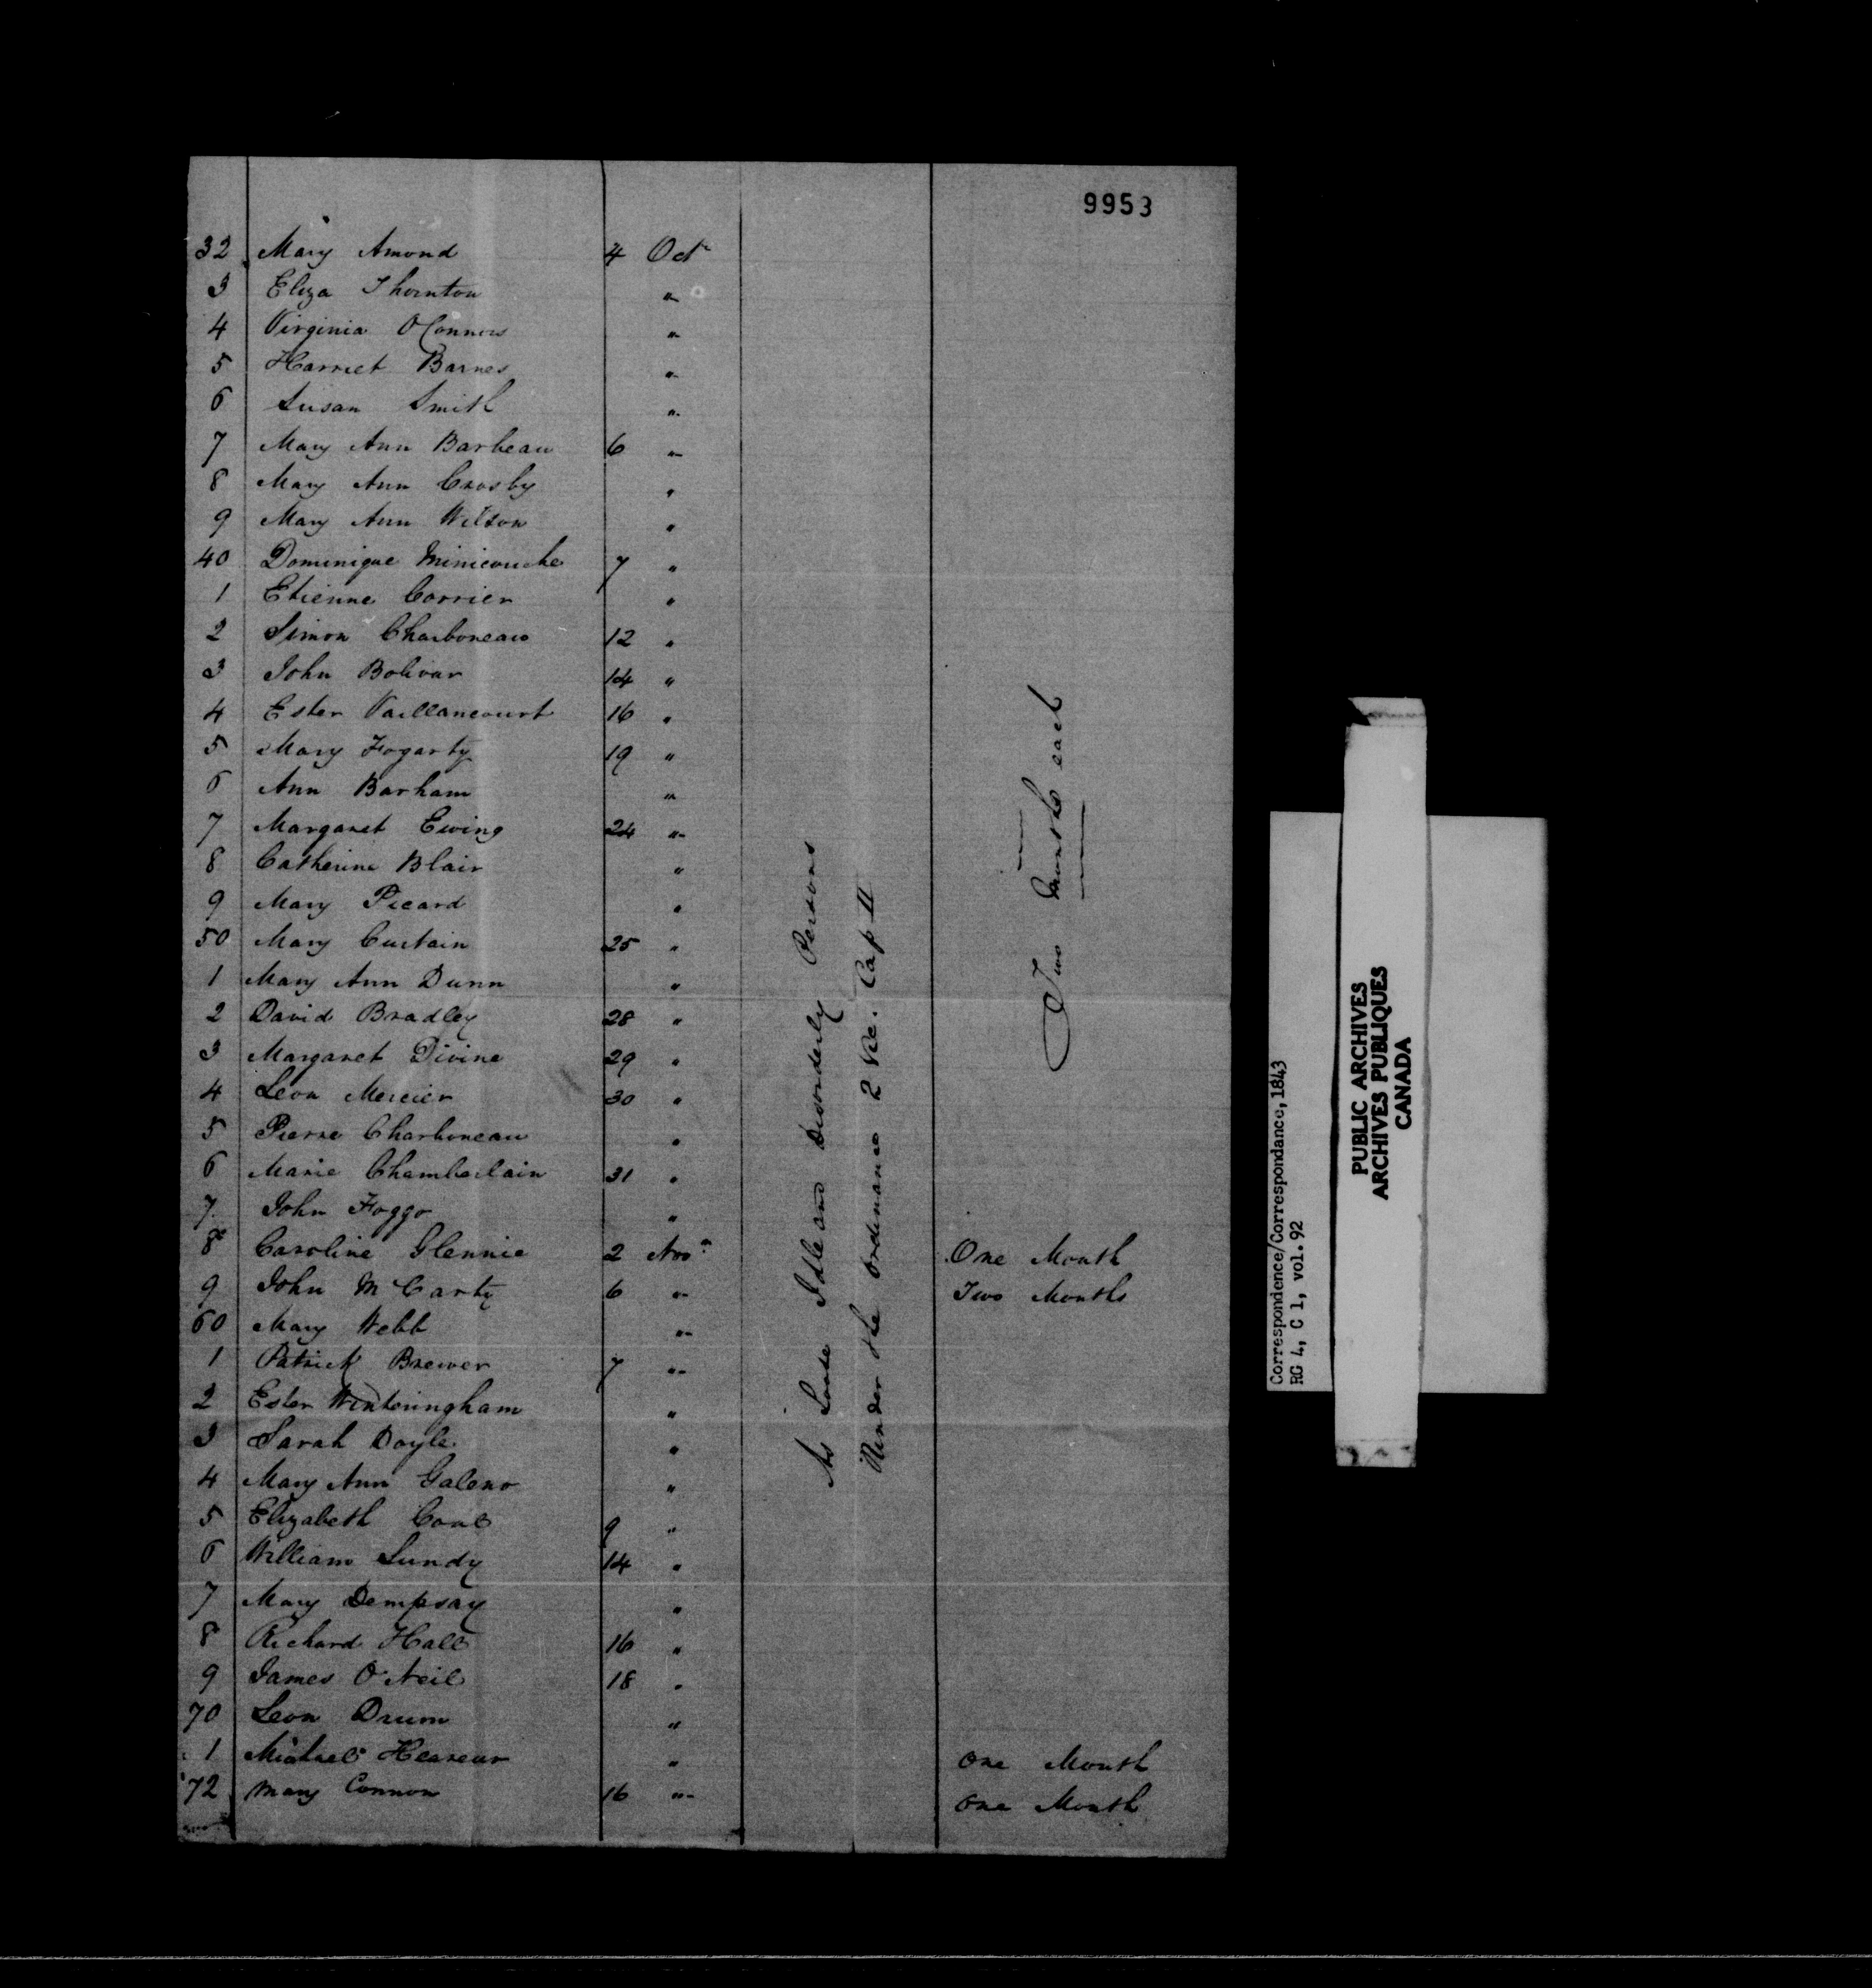 9953
32 Mary Amond 4 Octr
3 Eliza Thornton "
4 Virginia O'Connors "
5 Harriet Barnes "
6 Susan Smith "
7 Mary Ann Barbeau 6 "
8 Mary Ann Crosby "
9 Mary Ann Wilson "
40 Dominique Minicouche 7 "
1 Etienne Carrier "
2 Simon Charboneau 12 "
3 John Bolivar 14 "
4 Ester Vaillancourt 16 "
5 Mary Fogarty 19 "
6 Ann Barham "
7 Margaret Ewing 24 "
8 Catherine Blair "
9 Mary Picard "
50 Mary Curtain 25 "
1 Mary Ann Dunn "
2 David Bradley 28 "
3 Margaret Divine 29 "
4 Leon Mercier 30 "
5 Pierre Charboneau "
6 Marie Chamberlain 31 "
7 John Foggo "
8 Caroline Glennie 2 Novr One Month
9 John McCarty 6 " Two Months
60 Mary Webb "
1 Patrick Brewer 7 "
2 Ester Winteringham "
3 Sarah Doyle "
4 Mary Ann Galeno "
5 Elizabeth Coal 9 "
6 William Lundy 14 "
7 Mary Dempsay "
8 Richard Hall 16 "
9 James O'Neil 18 "
70 Leon Drum "
1 Michael " One Month
72 Mary Connon 16 " One Month
As Loose Idle and Disorderly Persons
Under the Ordinance 2 Vic. Cap II
Two Months each
Correspondence/Correspondance,1843
RG 4, C 1, vol.92
PUBLIC ARCHIVES
ARCHIVES PUBLIQUES
CANADA